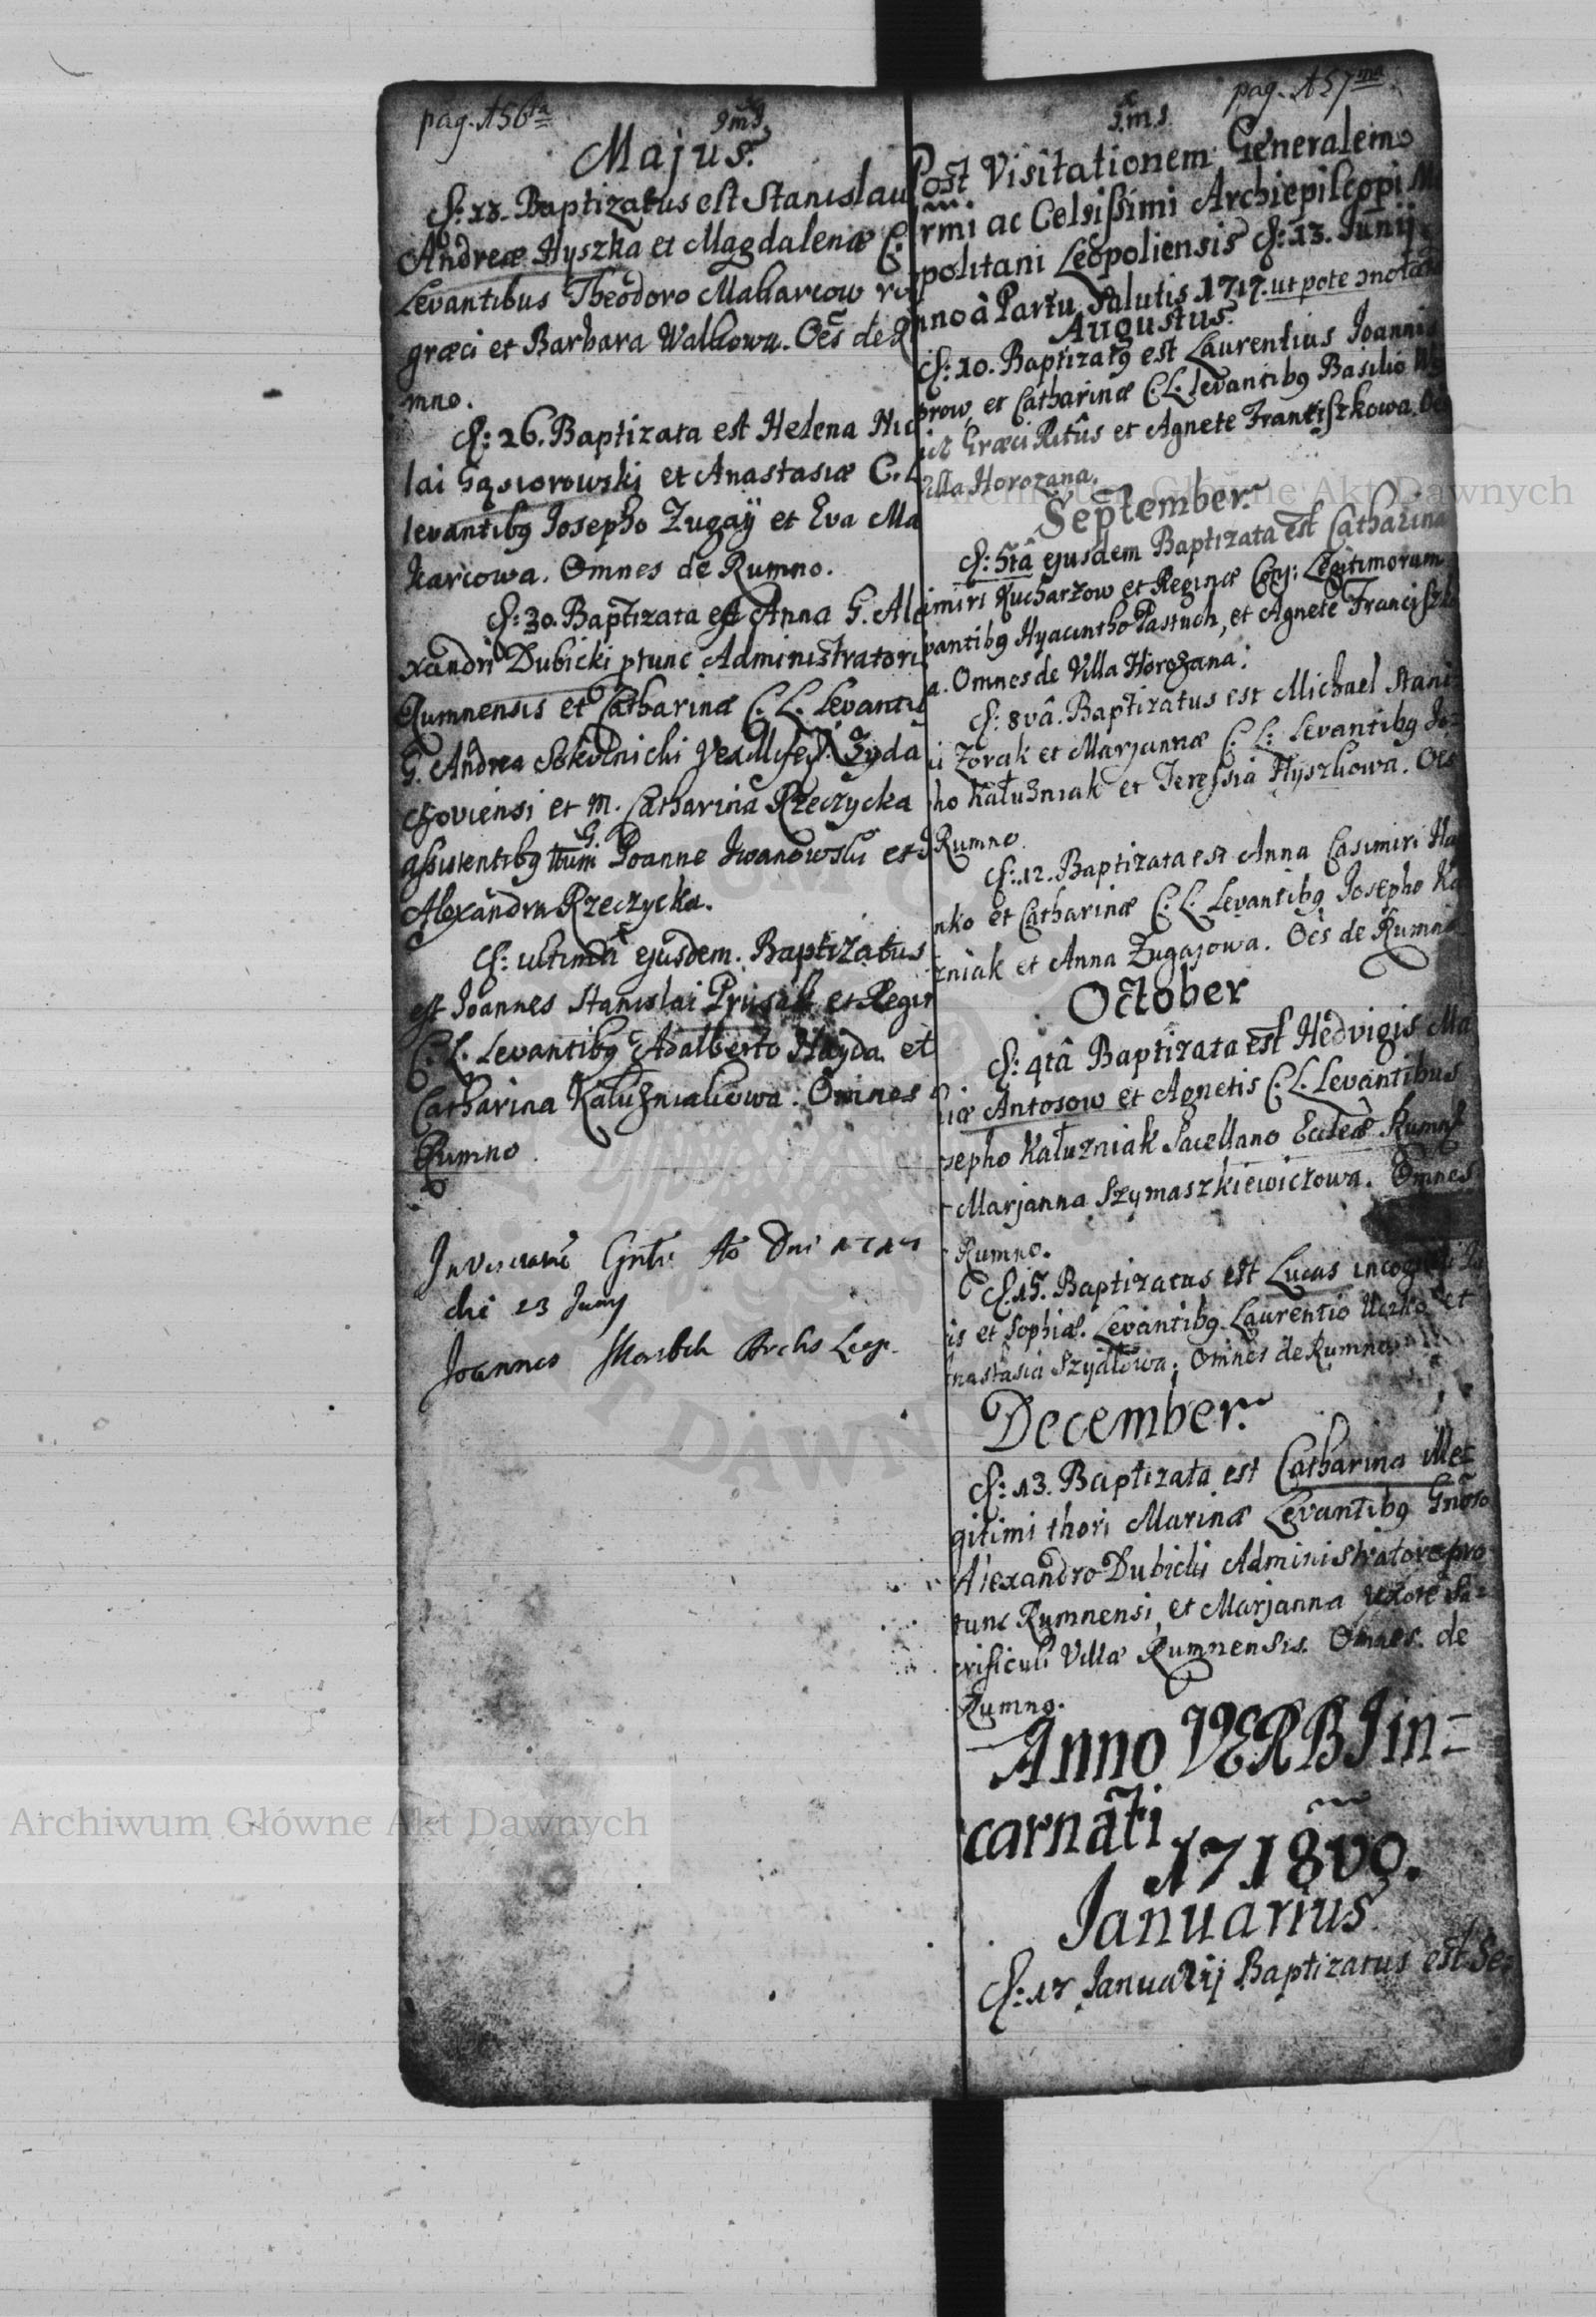 pag. 156ta
Majus.
d: 13. Baptizatus est Stanislau
Andreæ Hyszka et Magdalenæ C:
Levantibus Theodoro Makarcow
græci et Barbara Walkowa. Oes de
mno.
d: 26. Baptizata est Helena Nic
lai Gąsiorowski et Anastasiæ C. L
levantibg Josepho Zugaÿ et Eva Ma
karcowa. Omnes de Rumno.
d: 30. Baptizata est Anna G. Ale
xandri Dubicki ptunc Administratori
Rumnensis et Catharinæ C. L. Levantib
G. Andrea Sokolnicki Zyda
choviensi et M. Catharina Rzeczycka
assistentibg G. Joanne Iwanowski et
Alexandra Rzeczycka.
d: ultima ejusdem. Baptizatus
est Joannes Stanislai Prusak et Regin
C. L. Levantibg Adalberto Hayda et
Catharina Kałuzniakowa. Omnes
Rumno
In Visitatne Gnli Ao Dni 1717
die 13 Junij
Joannes Skarbek Archs Leop.
pag. 157ma
Post Visitationem Generalem
rmi ac Celsissimi Archiepiscopi M
politani Leopoliensis d: 13. Junij
nno à Partu Salutis 1717. ut pote
Augustus.
d: 10. Baptizatg est Laurentius Joannis
prow, et Catharinæ C. L. levantibg Basilio
icz Græci Ritûs et Agnete Frantiszkowa. Oes
illa Horozana.
September.
d: 5tâ ejusdem Baptizata est Catharina
imiri Kucharzow et Reginæ Conj: Legitimorum
vantibg Hyacintho Pastuch, et Agnete Franciszk
a. Omnes de Villa Horozana.
d: 8vâ. Baptizatus est Michael Stani
i Zorak et Marjannæ C. L: Levantibg Jo=
ho Kałuzniak et Teressia Hyszkowa. Oes
Rumno.
d: 12. Baptizata est Anna Casimiri Ha
nko et Catharinæ C. L. Levantibg Josepho Ka
zniak et Anna Zugajowa. Oes de Rumno
October
d: 4tâ Baptizata est Hedvigis Ma
iæ Antosow et Agnetis C. L. Levantibus
sepho Kałuzniak Sacellano Eccleæ Rumn
Marjanna Szymaszkiewiczowa. Omnes
Rumno.
d. 15. Baptizatus est Lucas incogniti
is et Sophiæ. Levantibg Laurentio et
nastasia Szydłowa; Omnes de Rumno
December.
d: 13. Baptizata est Catharina ille
gitimi thori Marinæ Levantibg Gnoso
Alexandro Dubicki Administratore pro
tunc Rumnensi, et Marjanna uxore
Villæ Rumnensis. Omnes de
Rumno.
Anno VERBI in=
carnati
1718vo.
Januarius
d: 17 Januarij Baptizatus est Se=
Archiwum Główne Akt Dawnych
Archiwum Główne Akt Dawnych